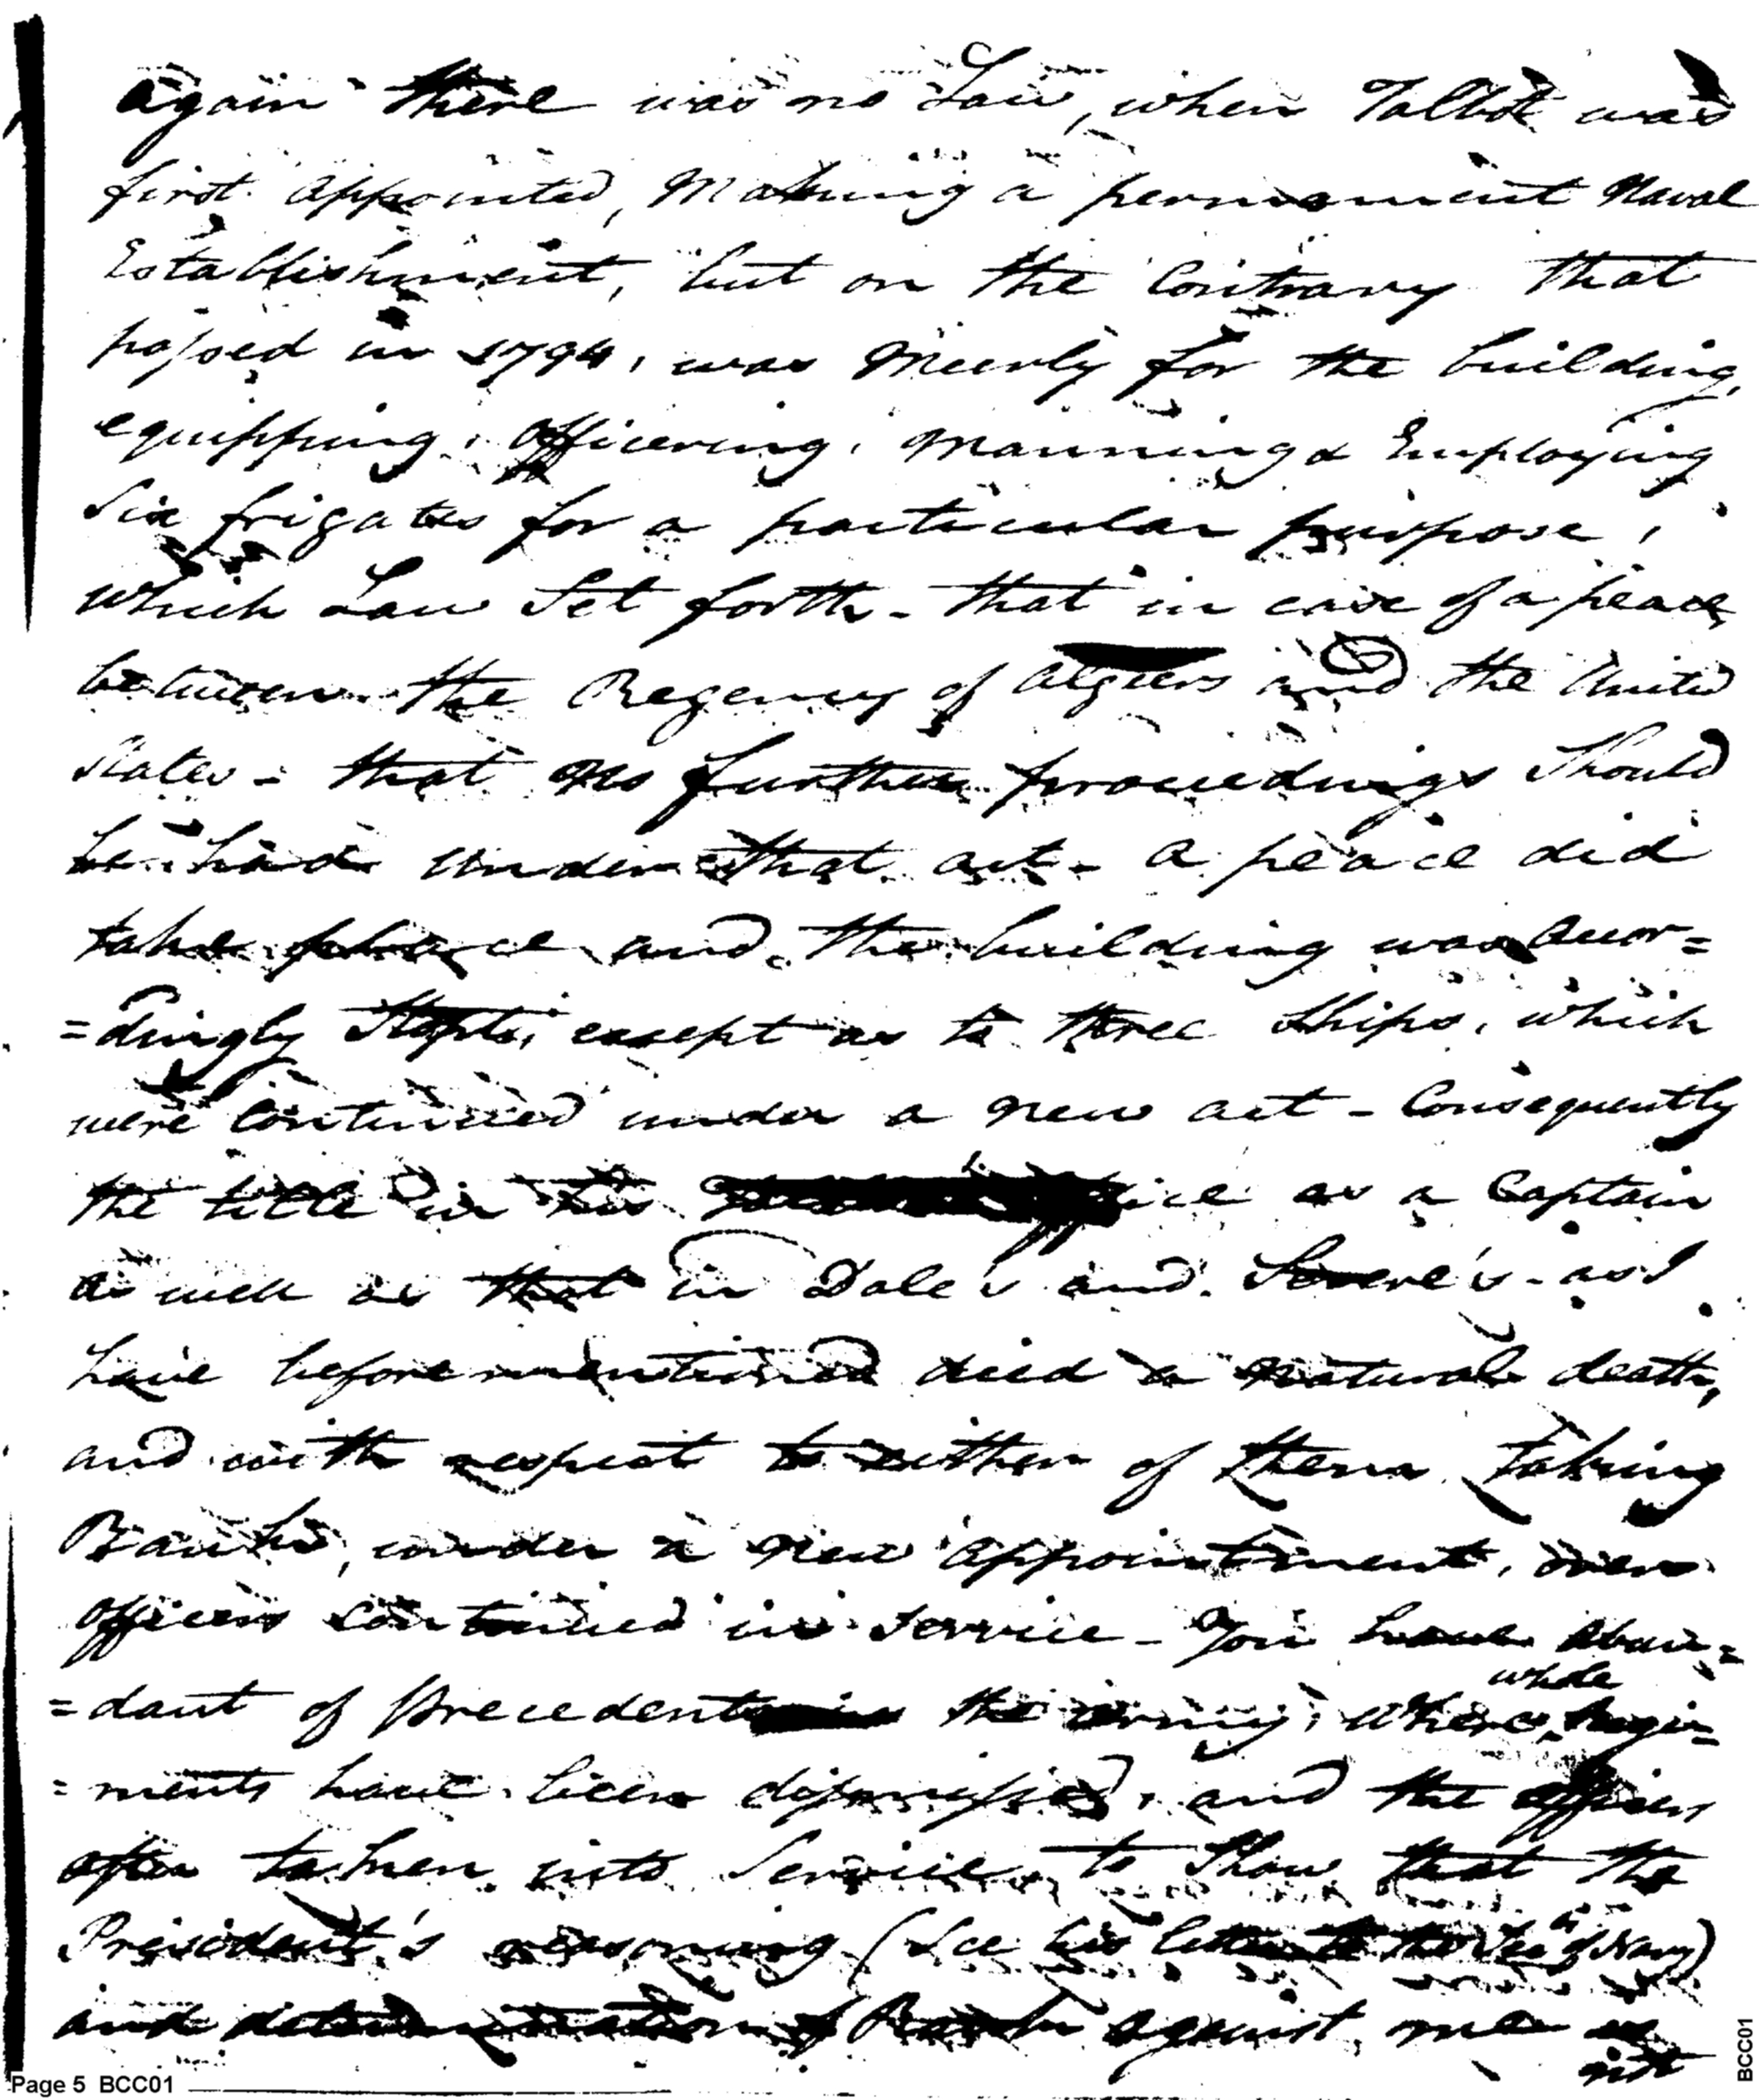 again there was no Law, when Talbot was
first appointed, Making a permanent Naval
Establishment, but on the Contrary that
passed in 1794, was Meerly for the building,
equipping, Officering, Manning & Employing
Six frigates for a particular purpose,
which Law Set forth - that in case of a peace
between the Regency of Algiers and the United
States - that no further proceedings Should
be had under that act - a peace did
take place and the building was accor=
=dingly Stopt, except as to three Ships, which
were Continued under a new act - Consequently
the title in his office as a Captain
as well as that in Dale's and Severe's - as I
have before mentioned died a natural death,
and with respect to either of them taking
Rank, under a new appointment, over
officers continued in Service - You have abun=
=dant of Precedents in the army, where whole Regi=
=ments have been dismissed, and the officers
after taken into Service, to Show that the
President's reasoning (See his letter to the Secy of Navy)
and determination of Rank against me is
not
Page 5 BCC01
BCC01